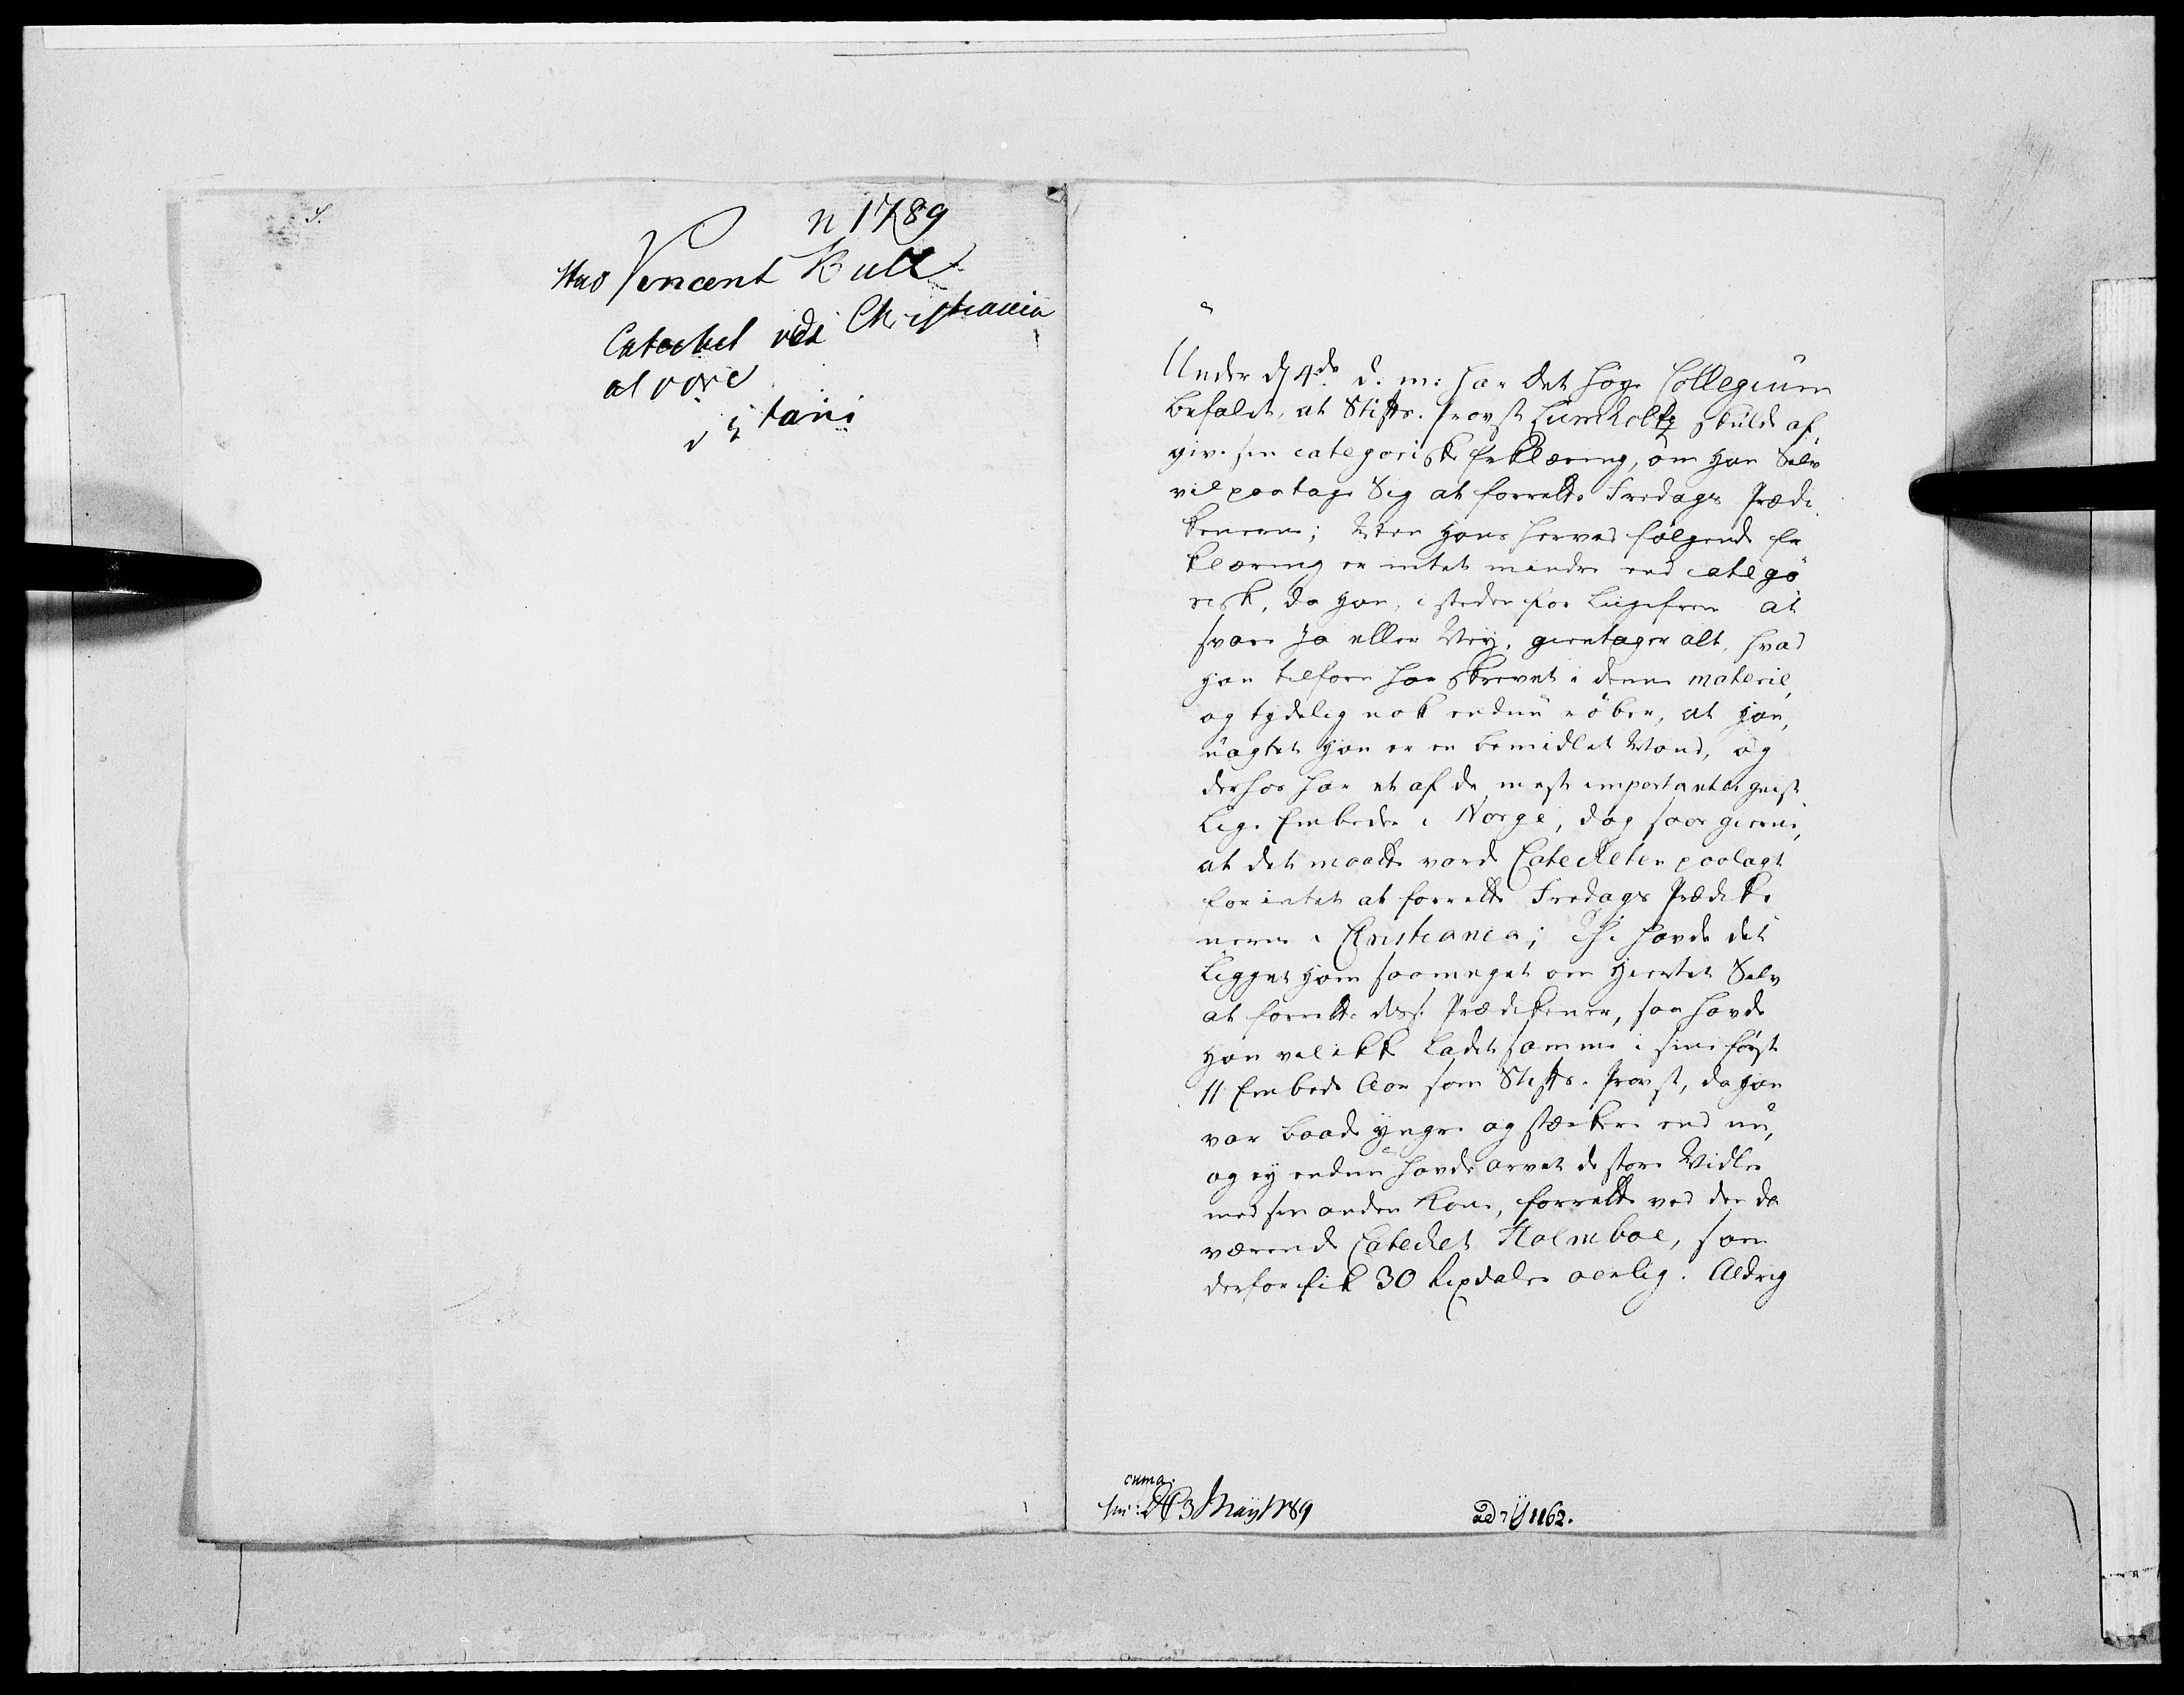 n 1789
Vincent
Catechet ved Christiania
at være
Under d 4de d. m: har det høye Collegium
befalet, at Stifts-Provst Lumholtz skulde af,
give sin categoriske Erklæring, om han Selv
vil paatage Sig at forrette Fredags Prædi
kenerne; Men hans herved følgende Er
klæring er intet mindre end catego
risk, da han, i steden for ligefrem at
svare Ja eller Ney, gientager alt, hvad
han tilforn har skrevet i denne materie,
og tydelig nok endnu røber, at han,
uagtet han er en bemidlet Mand, og
derhos har et af de mest importante geist
lige Embeder i Norge, dog saae gierne,
at det maatte vorde Catecheten paalagt
for intet at forrette Fredags Prædike
nerne i Christiania; thi havde det
ligget ham saameget om Hiertet Selv
at forrette disse Prædikener, saa havde
han vel ikke ladet samme i sine første
11 Embeds Aar som Stifts-Provst, da han
var baade yngre og stærkere end nu,
og ey endnu havde arvet de store Midler
med sin anden Kone, forrette ved den da
værende Catechet Holmboe, som
derfor fik 30 Rixdaler aarlig. Aldrig
3 Maÿ 1789
ad 1162.